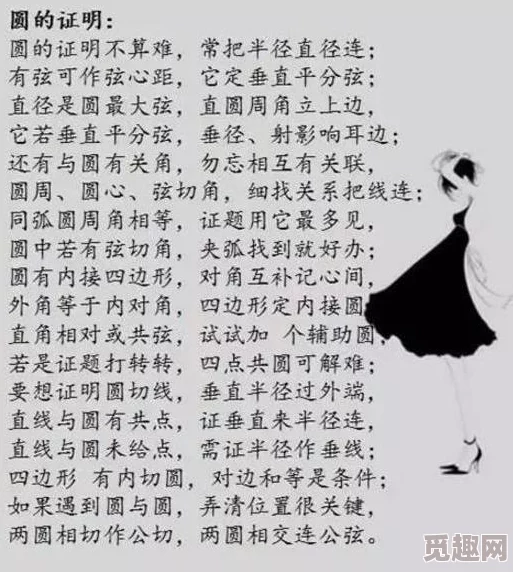 圆的证明：
圆的证明不算难，常把半径直径连；
有弦可作弦心距，它定垂直平分弦；
直径是圆最大弦，直圆周角立上边，
它若垂直平分弦，垂径、射影响耳边；
还有与圆有关角，勿忘相互有关联，
圆周、圆心、弦切角，细找关系把线连；
同弧圆周角相等，证题用它最多见，
圆中若有弦切角，夹弧找到就好办；
圆有内接四边形，对角互补记心间，
外角等于内对角，四边形定内接圆；
直角相对或共弦，试试加 个辅助圆；
若是证题打转转，四点共圆可解难；
要想证明圆切线，垂直半径过外端，
直线与圆有共点，证垂直来半径连，
直线与圆未给点，需证半径作垂线；
四边形 有内切圆，对边和等是条件；
如果遇到圆与圆，弄清位置很关键，
两圆相切作公切，两圆相交连公弦。
觅趣网